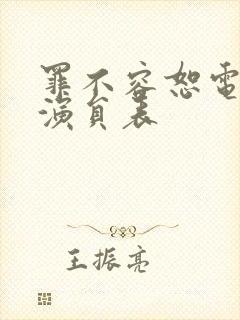 罪不容恕電
演員表
王振亮